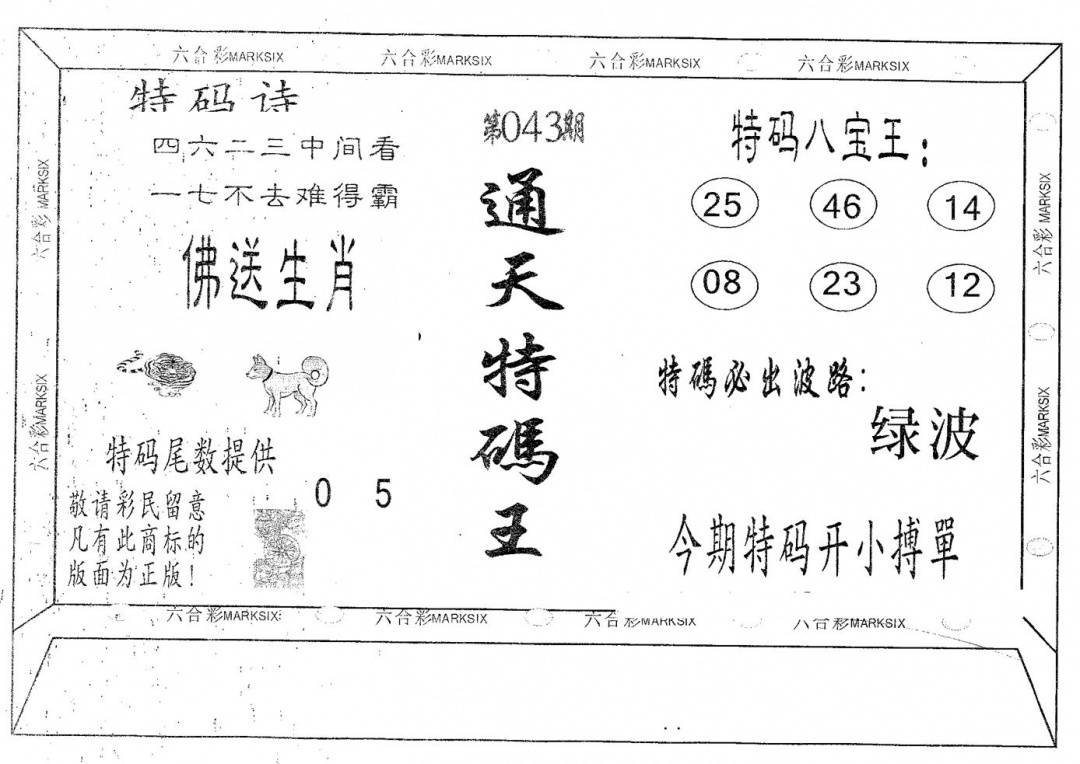 六合彩MARKSIX 六合彩MARKSIX 六合彩MARKSIX 六合彩MARKSIX
特码诗
四六二三中间看
一七不去难得霸
佛送生肖
特码尾数提供
0 5
敬请彩民留意
凡有此商标的
版面为正版！
第043期
通天特碼王
特码八宝王：
25 46 14
08 23 12
特碼必出波路：
绿波
今期特码开小搏單
六合彩MARKSIX
六合彩MARKSIX
六合彩MARKSIX
六合彩MARKSIX
六合彩MARKSIX 六合彩MARKSIX 六合彩MARKSIX 六合彩MARKSIX